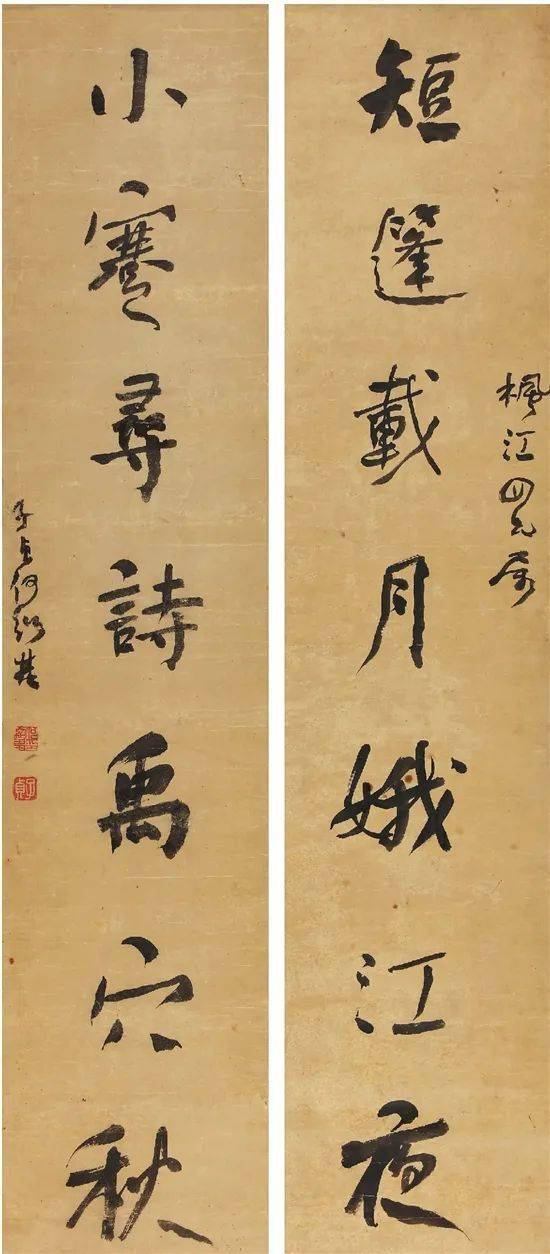 短篷載月娥江夜
楓江四兄屬
小蹇尋詩禹穴秋
子貞何紹基
子貞